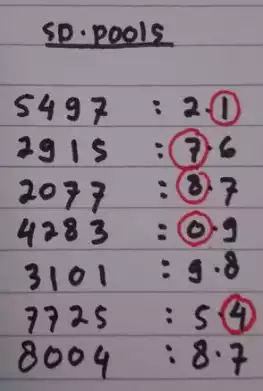 SD.POOLS
5497 : 2.1
2915 : 7.6
2077 : 8.7
4283 : 0.9
3101 : 9.8
7725 : 5.4
8004 : 8.7